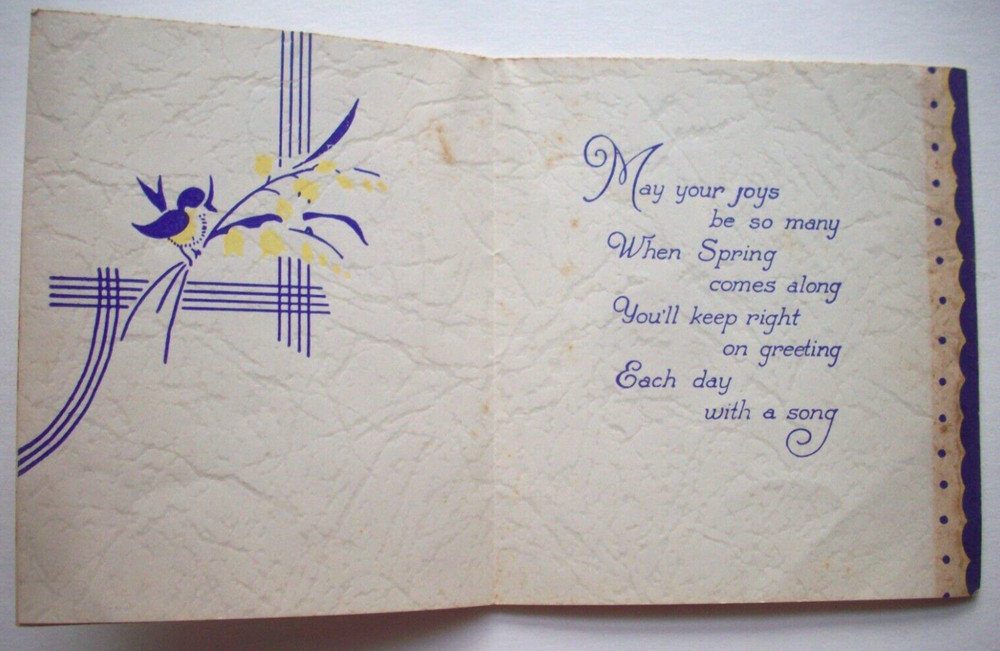 May your joys
be so many
When Spring
comes along
You'll keep right
on greeting
Each day
with a song